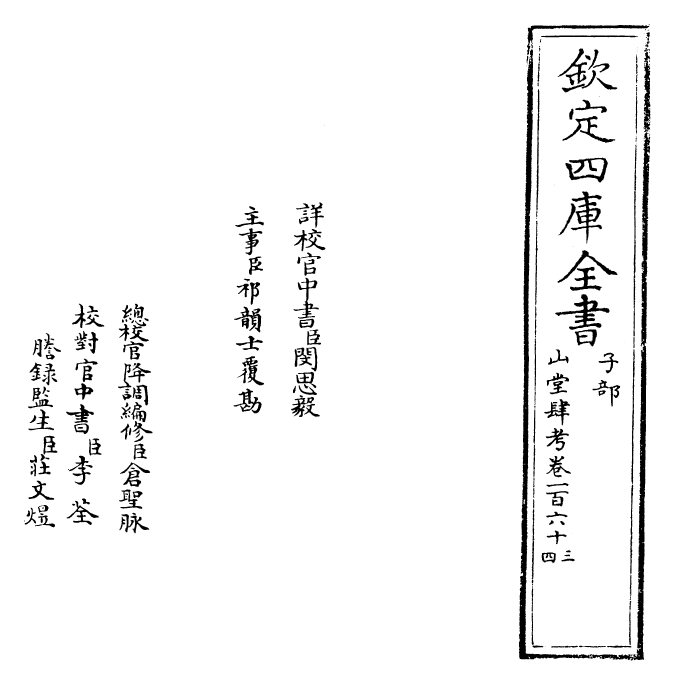 欽定四庫全書
子部
山堂肆考卷二百六十三
四
詳校官中書臣閔思毅
主事臣祁韻士覆勘
總校官降調編修臣倉聖脉
校對官中書臣李荃
謄錄監生臣莊文煜